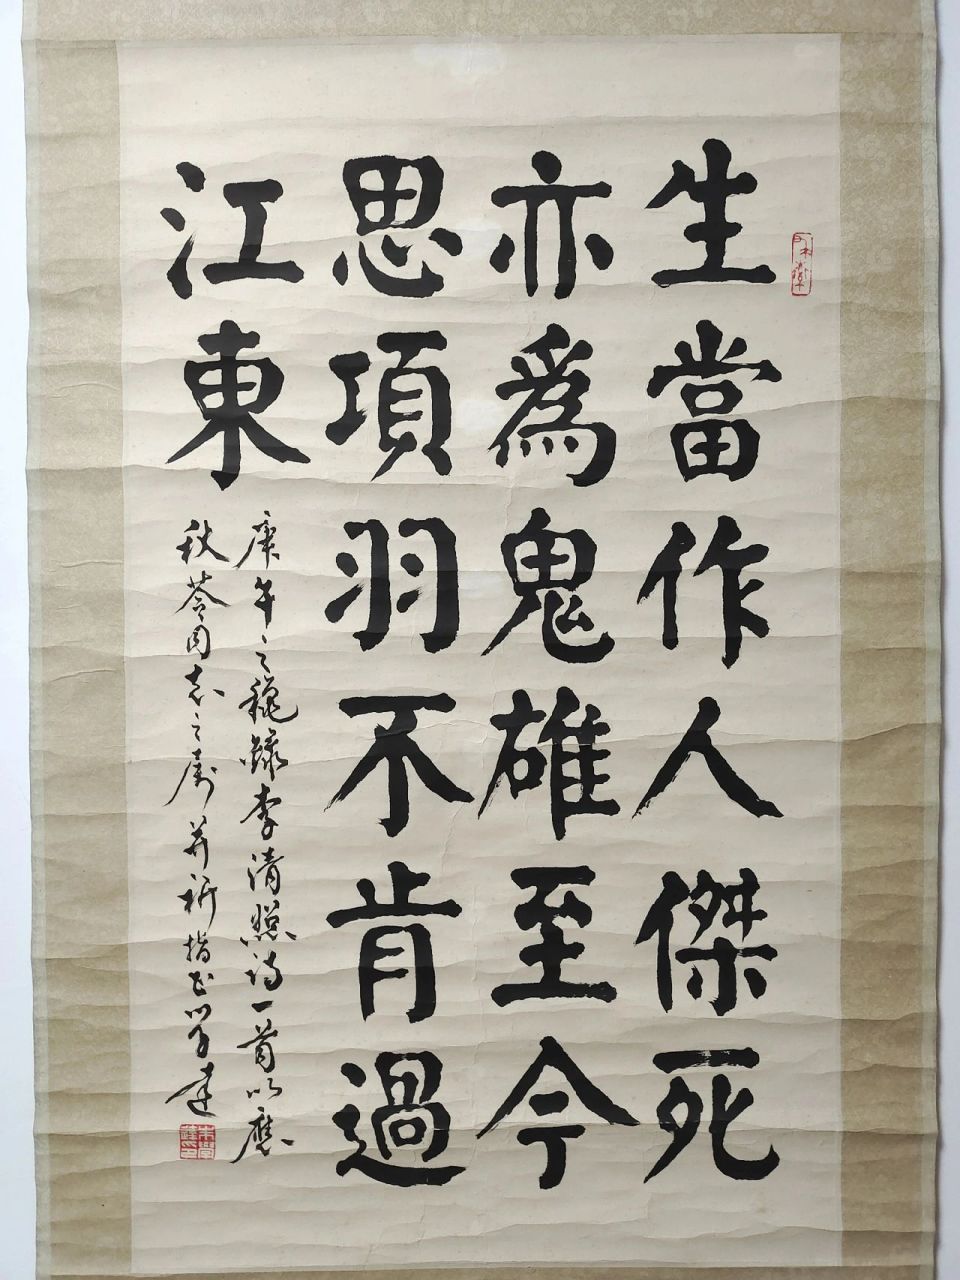 生當作人傑死
亦為鬼雄至今
思項羽不肯過
江東
庚午之龝錄李清照詩一首以應
秋苓同志之屬并祈指正學達
朱學達印